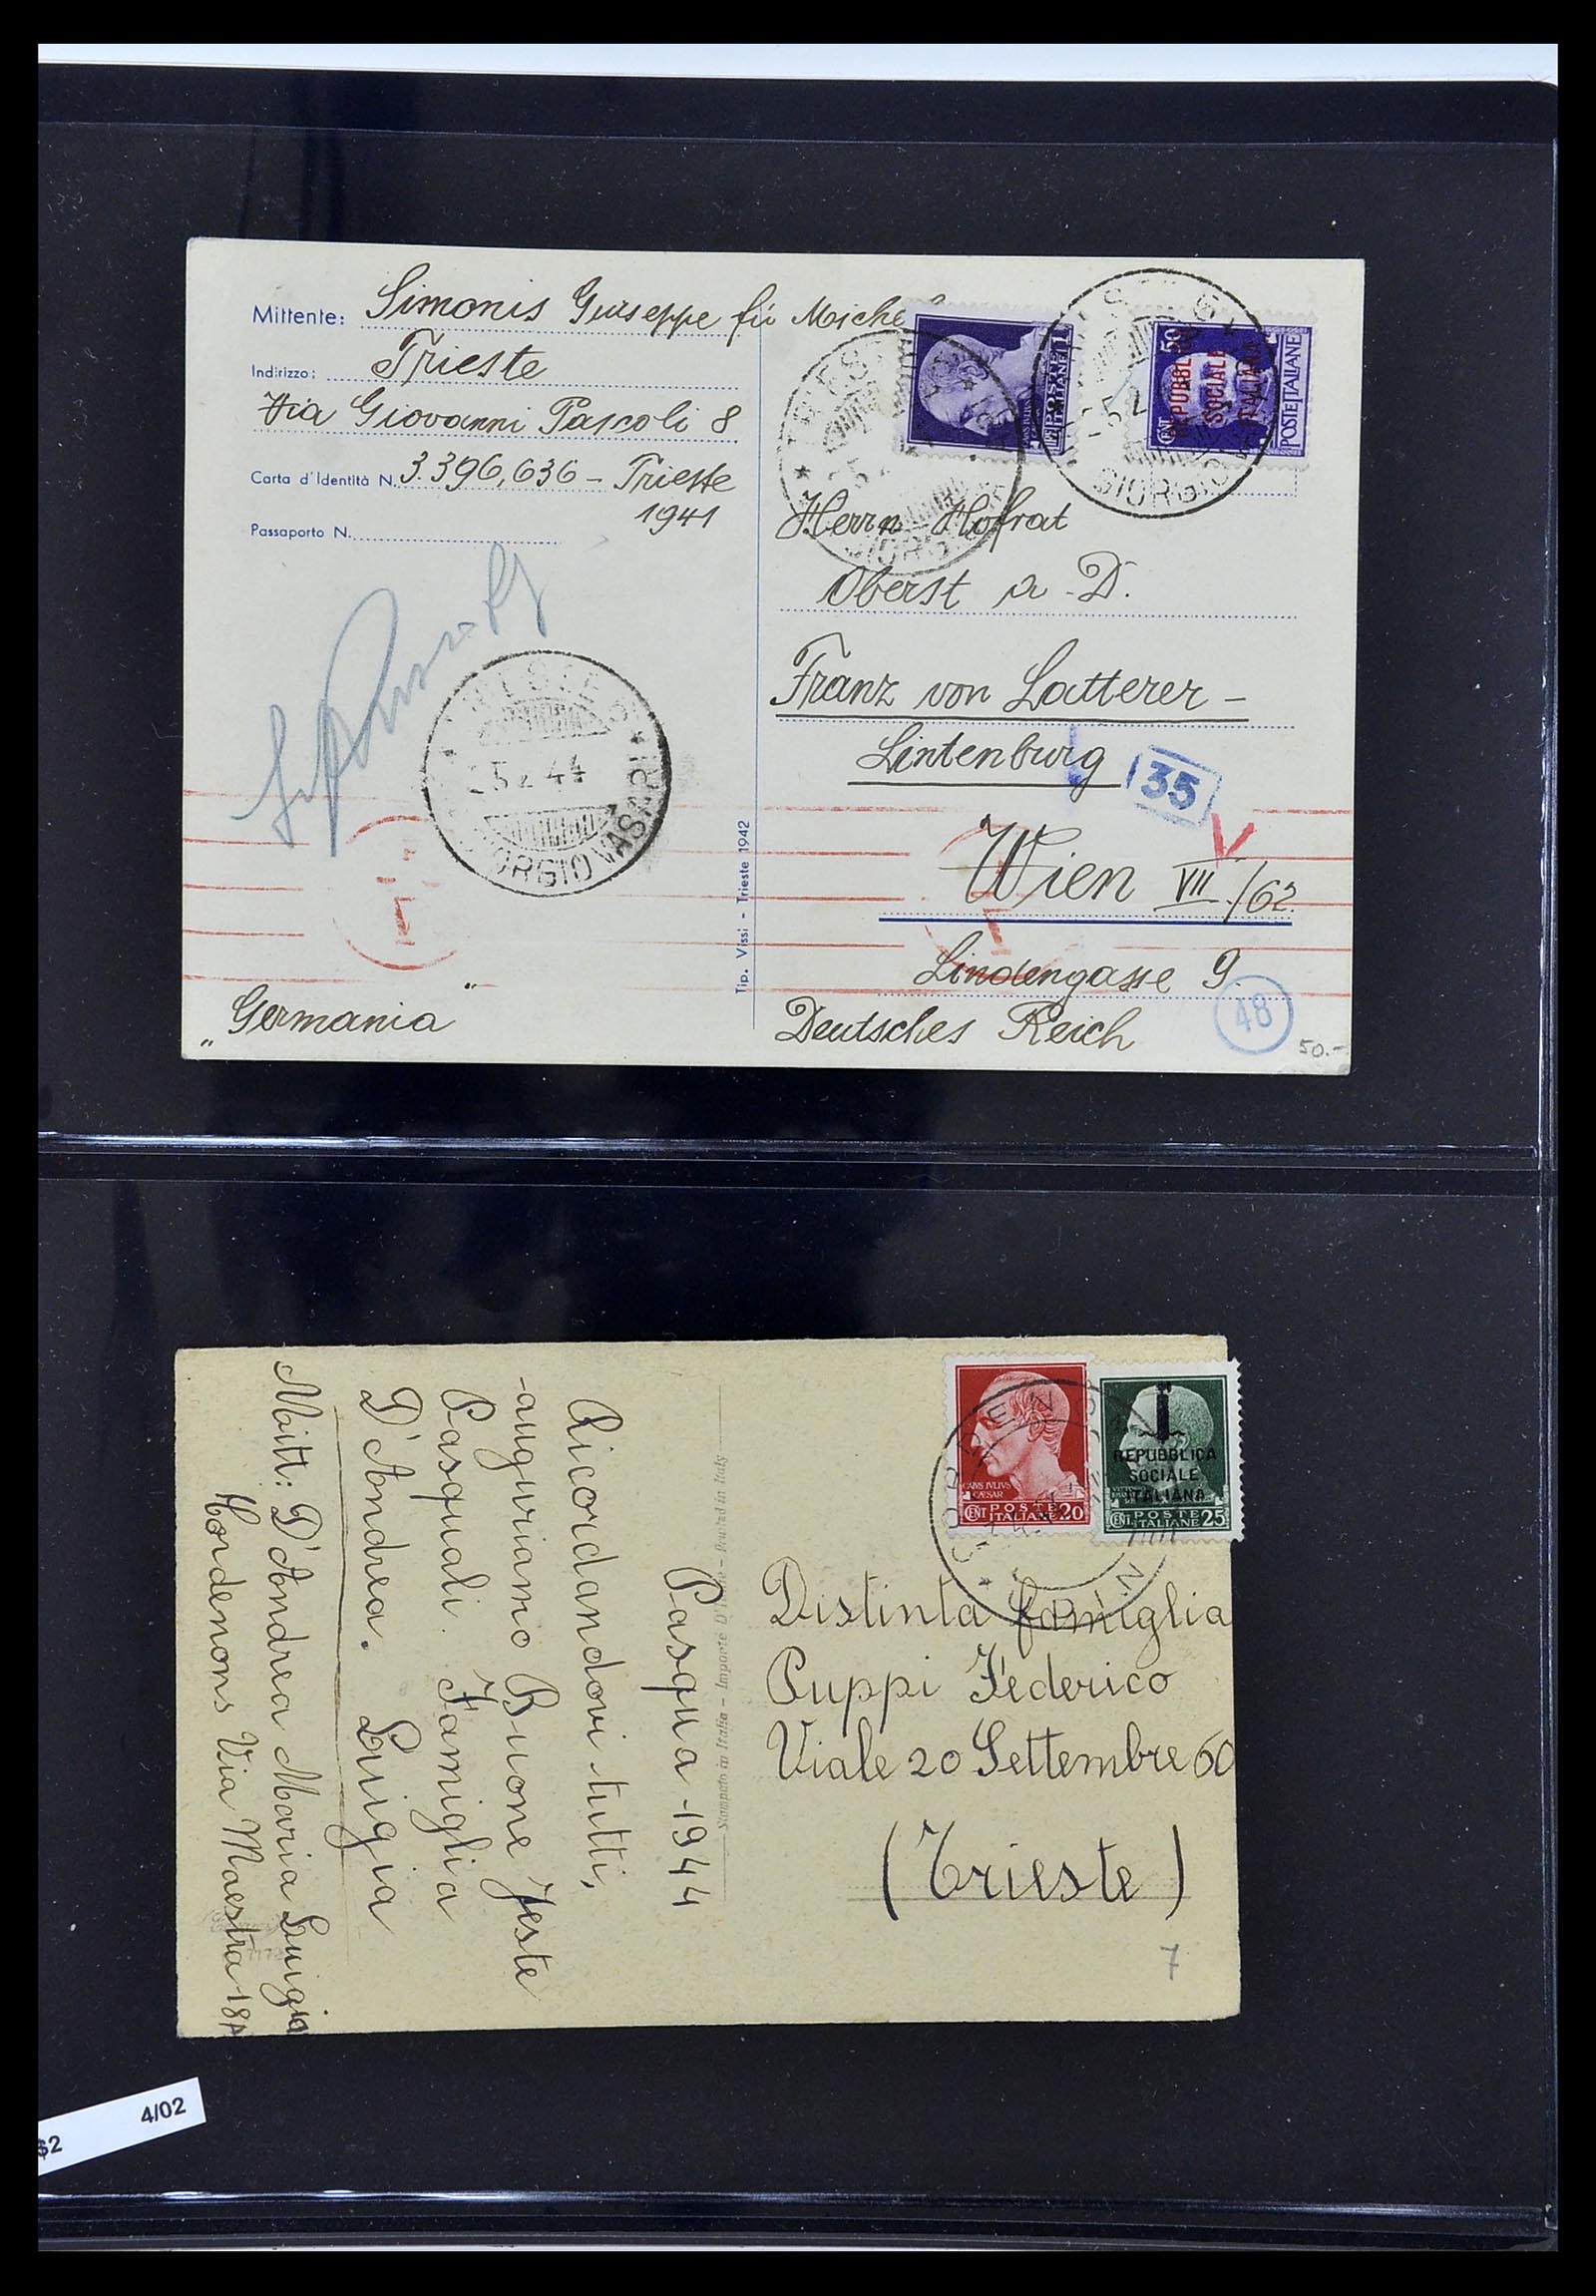 Mittente: Simonis Giuseppe fu Miche
Indirizzo: Trieste
Via Giovanni Pascoli 8
Carta d'Identità N. 3.396,636 – Trieste
1941
Passaporto N.
25 2 44
GIORGIO VASARI
„Germania"
Tip. Vissi - Trieste 1942
POSTE ITALIANE 1
CENT 50
REPUBBLICA
SOCIALE
ITALIANA
POSTE ITALIANE
GIORGIO
Herrn Hofrat
Oberst a. D.
Franz von Latterer –
Lintenburg
35
Wien VII./62.
Lindengasse 9.
Deutsches Reich
48
50.-
CAIVS IVLIVS
CAESAR
CENT POSTE ITALIANE 20
REPUBBLICA
SOCIALE
ITALIANA
CENT. POSTE ITALIANE 25
Distinta famiglia
Puppi Federico
Viale 20 Settembre 60
(Trieste)
7
Stampato in Italia - Importé D'Italie - Printed in Italy
Pasqua 1944
Ricordandovi tutti,
auguriamo Buone Feste
Pasquali. Famiglia
D'Andrea. Luigia
Mitt: D'Andrea Maria Luigia
Cordenons Via Maestra 18A
4/02
$2